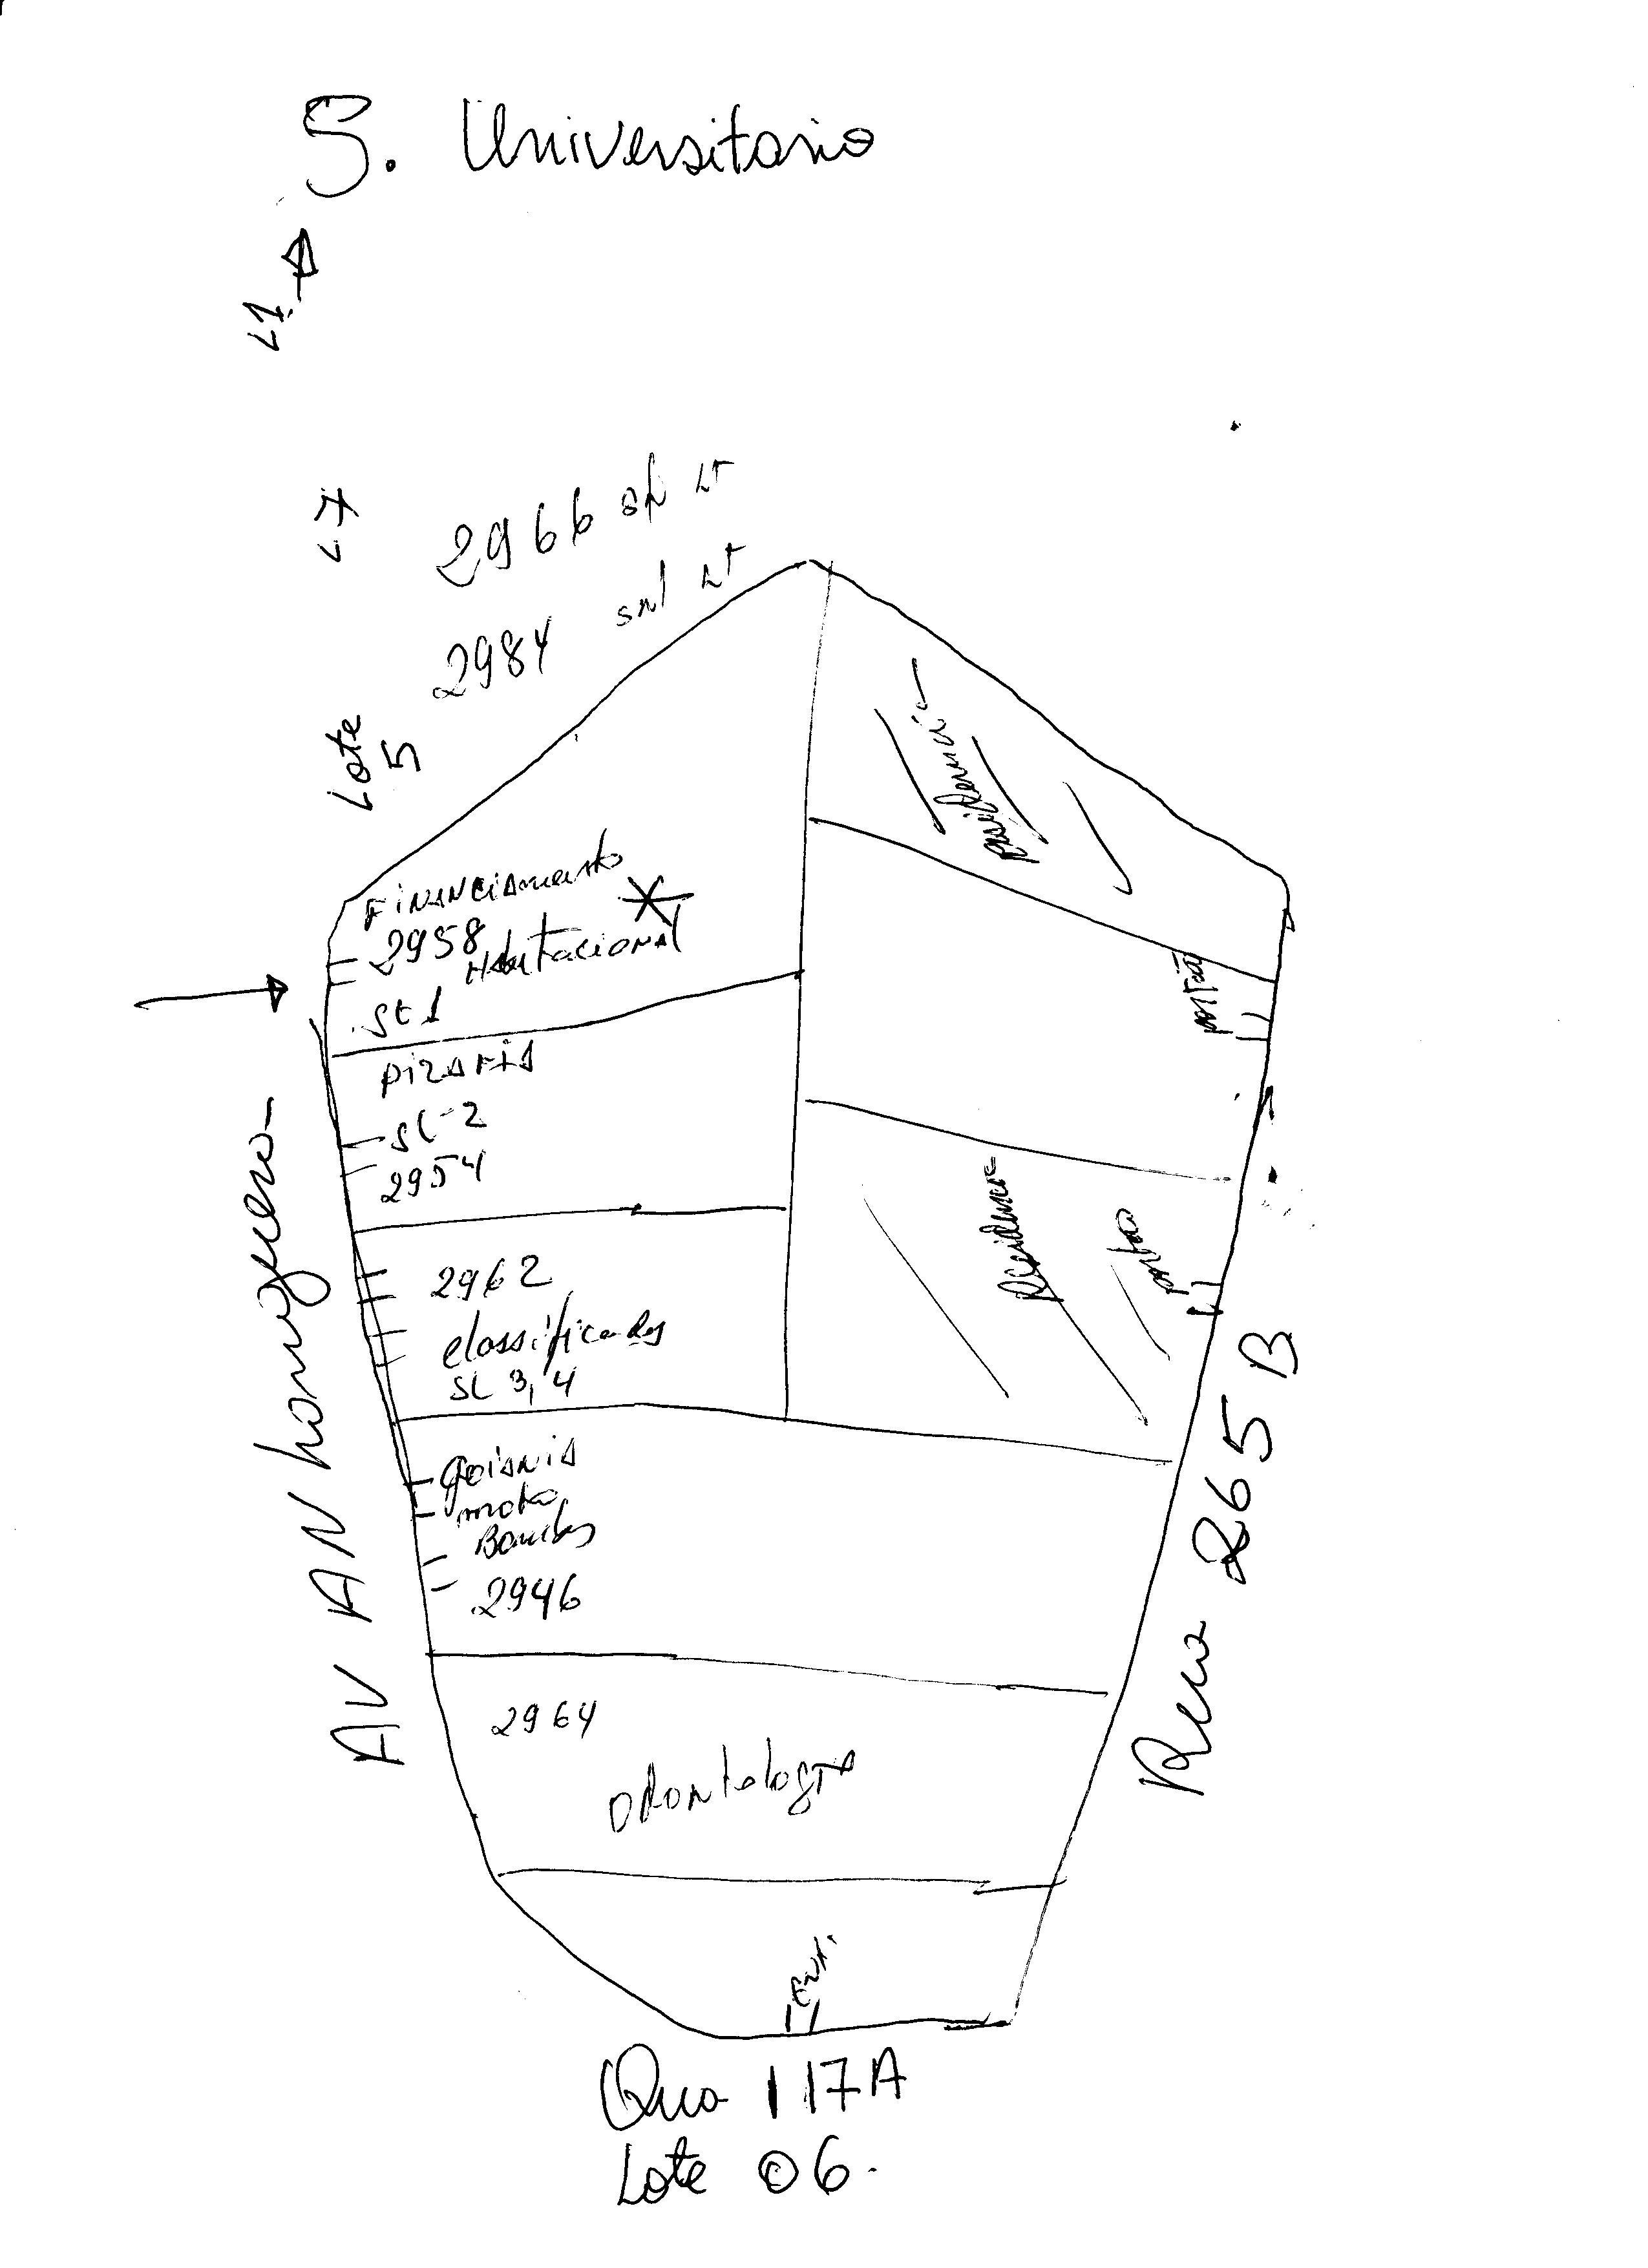 S. Universitario
L1
L7
2966 s/n LT
2984 s/n LT
Lote
5
Residencia
FiNANCiAmento
2958
HAbitacional
SL 1
portão
PizARiA
SL-2
2954
2962
classificados
SL 3, 4
Residencia
portão
AV ANhanguera
Rua 265 B
goiania
moto
Bombas
2946
2964
Odontologia
Ent.
Qua 117A
Lote 06.